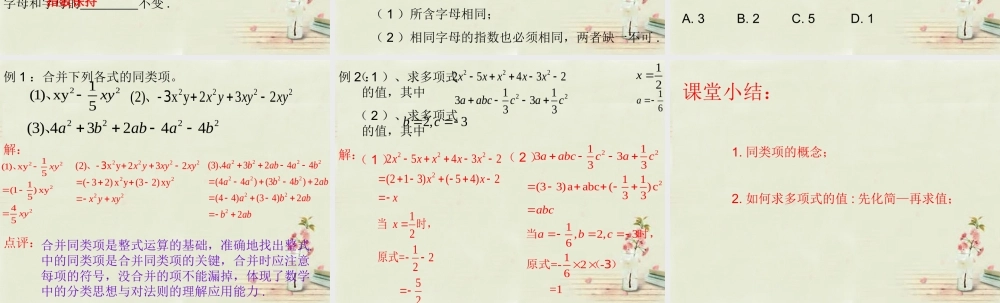 字母和字母的 不变.
指数保持
(1)所含字母相同;
(2)相同字母的指数也必须相同,两者缺一不可.
A. 3 B. 2 C. 5 D. 1
例1:合并下列各式的同类项。
(1)、xy² - 1/5 xy² (2)、-3x²y+2x²y+3xy²-2xy²
(3)、4a²+3b²+2ab-4a²-4b²
解:
(1)、xy² - 1/5 xy²
=(1-1/5)xy²
=4/5 xy²
(2)、-3x²y+2x²y+3xy²-2xy²
=(-3+2)x²y+(3-2)xy²
=-x²y+xy²
(3)、4a²+3b²+2ab-4a²-4b²
=(4a²-4a²)+(3b²-4b²)+2ab
=(4-4)a²+(3-4)b²+2ab
=-b²+2ab
点评:
合并同类项是整式运算的基础,准确地找出整式
中的同类项是合并同类项的关键,合并时应注意
每项的符号,没合并的项不能漏掉,体现了数学
中的分类思想与对法则的理解应用能力.
例2:(1)、求多项式 2x²-5x+x²+4x-3x²-2
的值,其中 x=1/2
(2)、求多项式 3a+abc-1/3c²-3a+1/3c²
的值,其中 a=-1/6 b=2,c=-3
解:
(1) 2x²-5x+x²+4x-3x²-2
=(2+1-3)x²+(-5+4)x-2
=-x
当 x=1/2时,
原式=-1/2-2
=-5/2
(2) 3a+abc-1/3c²-3a+1/3c²
=(3-3)a+abc+(-1/3+1/3)c²
=abc
当a=-1/6,b=2,c=-3时,
原式=-1/6×2×(-3)
=1
课堂小结:
1. 同类项的概念;
2. 如何求多项式的值:先化简—再求值;